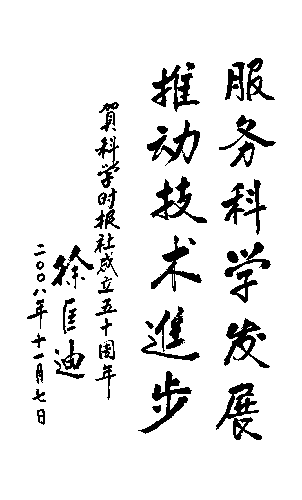 服务科学发展
推动技术進步
賀科学时报社成立五十周年
徐匡迪
二〇〇八年十一月七日